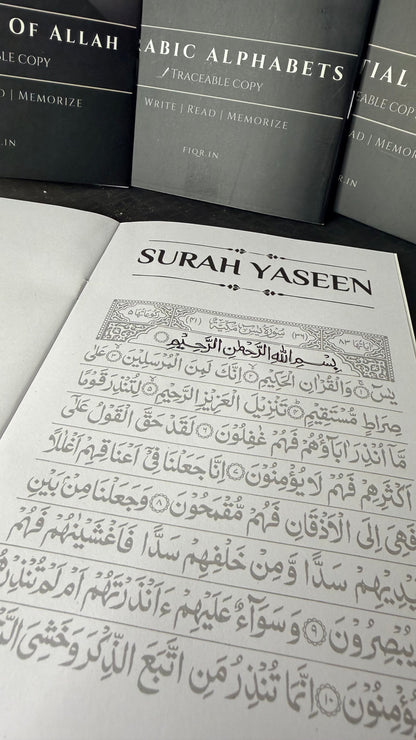 OF ALLAH
ABLE COPY
D | MEMORIZE
ABIC ALPHABETS
TRACEABLE COPY
WRITE | READ | MEMORIZE
FIQR.IN
TIAL
EABLE COPY
AD | MEMOR
R.IN
SURAH YASEEN
سُوْرَةُ يٰسٓ مَكِّيَّةٌ
بِسْمِ اللهِ الرَّحْمٰنِ الرَّحِيْمِ
يٰسٓ ۝١ وَالْقُرْاٰنِ الْحَكِيْمِ ۝٢ اِنَّكَ لَمِنَ الْمُرْسَلِيْنَ ۝٣ عَلٰى
صِرَاطٍ مُّسْتَقِيْمٍ ۝٤ تَنْزِيْلَ الْعَزِيْزِ الرَّحِيْمِ ۝٥ لِتُنْذِرَ قَوْمًا
مَّاۤ اُنْذِرَ اٰبَآؤُهُمْ فَهُمْ غٰفِلُوْنَ ۝٦ لَقَدْ حَقَّ الْقَوْلُ عَلٰۤى
اَكْثَرِهِمْ فَهُمْ لَا يُؤْمِنُوْنَ ۝٧ اِنَّا جَعَلْنَا فِيْۤ اَعْنَاقِهِمْ اَغْلٰلًا
فَهِيَ اِلَى الْاَذْقَانِ فَهُمْ مُّقْمَحُوْنَ ۝٨ وَجَعَلْنَا مِنْۢ بَيْنِ
يْدِيْهِمْ سَدًّا وَّمِنْ خَلْفِهِمْ سَدًّا فَاَغْشَيْنٰهُمْ فَهُمْ
يُبْصِرُوْنَ ۝٩ وَسَوَآءٌ عَلَيْهِمْ ءَاَنْذَرْتَهُمْ اَمْ لَمْ تُنْذِرْهُ
ؤْمِنُوْنَ ۝١٠ اِنَّمَا تُنْذِرُ مَنِ اتَّبَعَ الذِّكْرَ وَخَشِيَ